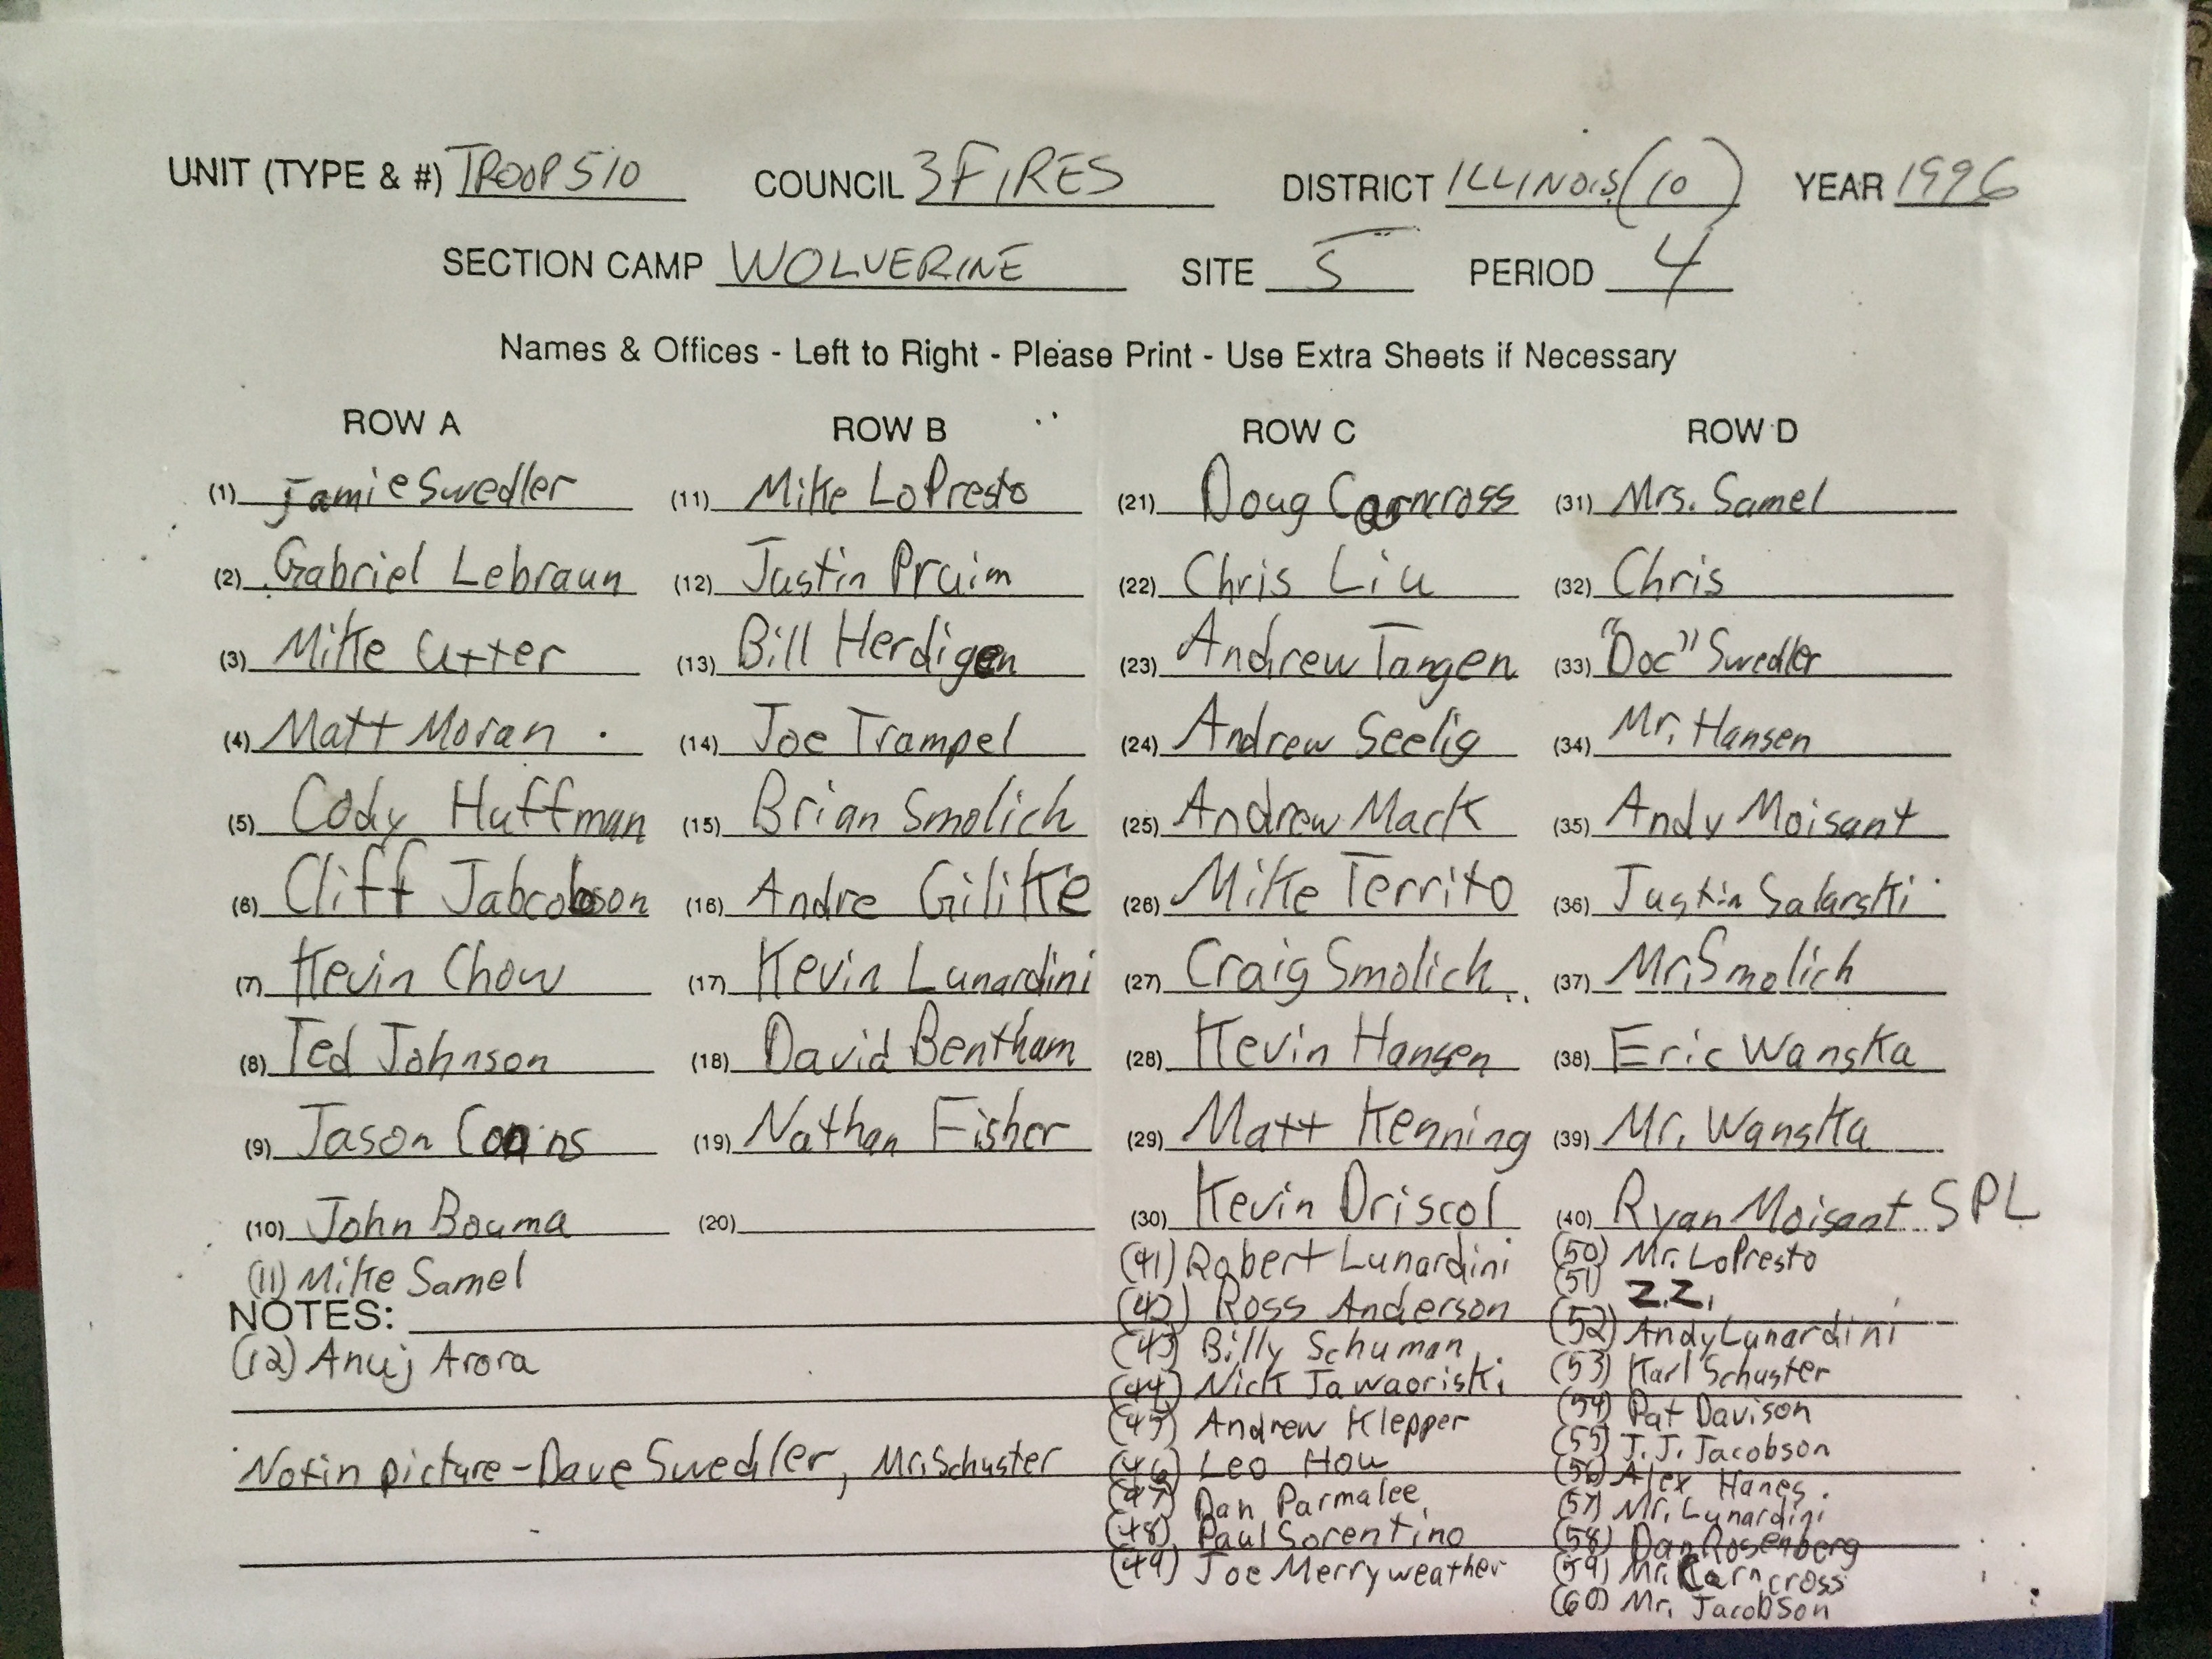 UNIT (TYPE & #) TROOP 510 COUNCIL 3 FIRES DISTRICT ILLINOIS (10) YEAR 1996
SECTION CAMP WOLVERINE SITE 5 PERIOD 4
Names & Offices - Left to Right - Please Print - Use Extra Sheets if Necessary
ROW A
(1) Jamie Swedler
(2) Gabriel Lebraun
(3) Mike Utter
(4) Matt Moran
(5) Cody Huffman
(6) Cliff Jabcobson
(7) Kevin Chow
(8) Ted Johnson
(9) Jason
(10) John Bouma
(11) Mike Samel
NOTES:
(12) Anuj Arora
Not in picture - Dave Swedler, Mr. Schuster
ROW B
(11) Mike LoPresto
(12) Justin Pruim
(13) Bill Herdigen
(14) Joe Trampel
(15) Brian Smolich
(16) Andre Gilike
(17) Kevin Lunardini
(18) David Bentham
(19) Nathan Fisher
(20)
ROW C
(21) Doug Carncross
(22) Chris Liu
(23) Andrew Tangen
(24) Andrew Seelig
(25) Andrew Mack
(26) Mike Territo
(27) Craig Smolich
(28) Kevin Hansen
(29) Matt Kenning
(30) Kevin Driscol
(41) Robert Lunardini
(42) Ross Anderson
(43) Billy Schuman
(44) Nick Jawaoriski
(45) Andrew Klepper
(46) Leo How
(47) Dan Parmalee
(48) Paul Sorentino
(49) Joe Merryweather
ROW D
(31) Mrs. Samel
(32) Chris
(33) "Doc" Swedler
(34) Mr. Hansen
(35) Andy Moisant
(36) Justin Salarski
(37) Mr. Smolich
(38) Eric Wanska
(39) Mr. Wanska
(40) Ryan Moisant SPL
(50) Mr. LoPresto
(51) Z.Z.
(52) Andy Lunardini
(53) Karl Schuster
(54) Pat Davison
(55) J.J. Jacobson
(56) Alex Hanes
(57) Mr. Lunardini
(58) Dan Rosenberg
(59) Mr. Carncross
(60) Mr. Jacobson